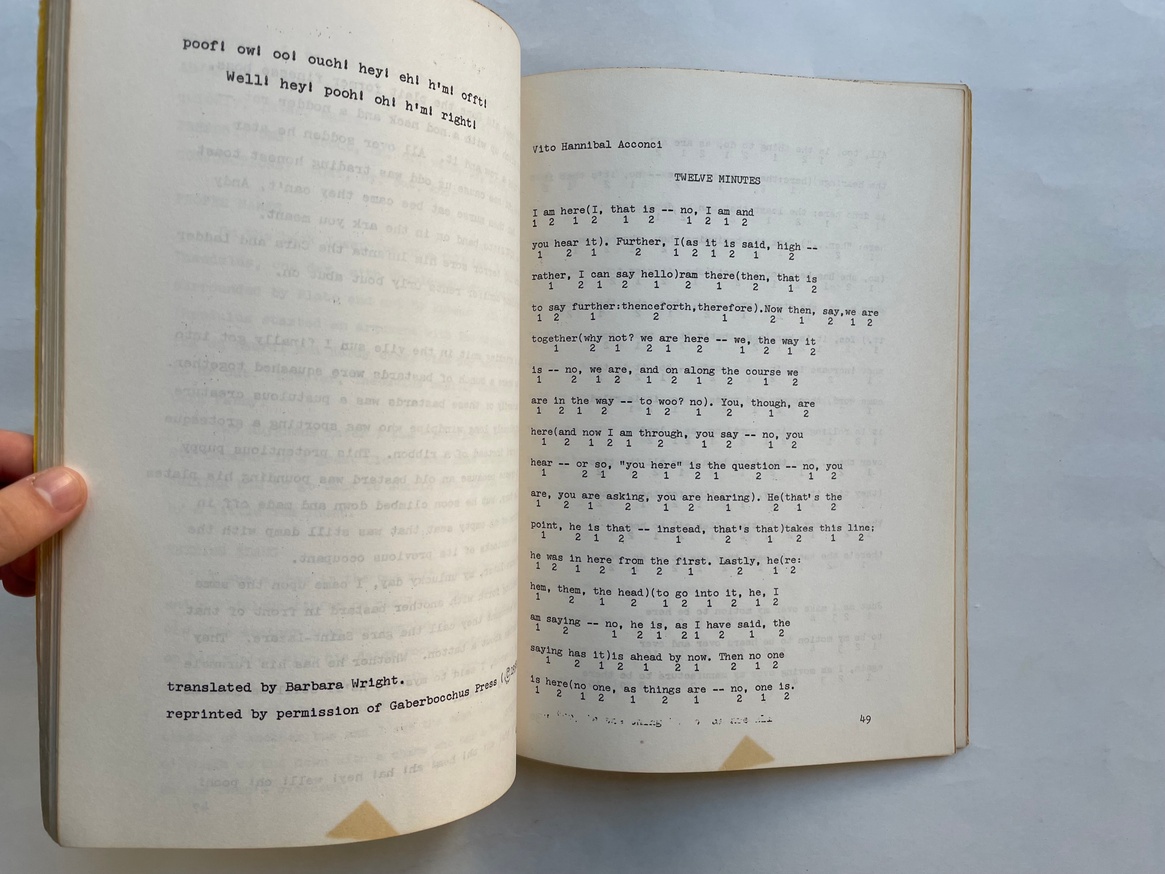 poof! ow! oo! ouch! hey! eh! h'm! offt!
Well! hey! pooh! oh! h'm! right!
translated by Barbara Wright.
reprinted by permission of Gaberbocchus Press
Vito Hannibal Acconci
TWELVE MINUTES
I am here(I, that is -- no, I am and
1 2 1 2 1 2 1 2 1 2
you hear it). Further, I(as it is said, high --
1 2 1 2 1 2 1 2 1 2
rather, I can say hello)ram there(then, that is
1 2 1 2 1 2 1 2 1 2
to say further:thenceforth,therefore).Now then, say,we are
1 2 1 2 1 2 1 2 1 2
together(why not? we are here -- we, the way it
1 2 1 2 1 2 1 2 1 2
is -- no, we are, and on along the course we
1 2 1 2 1 2 1 2 1 2
are in the way -- to woo? no). You, though, are
1 2 1 2 1 2 1 2 1 2
here(and now I am through, you say -- no, you
1 2 1 2 1 2 1 2 1 2
hear -- or so, "you here" is the question -- no, you
1 2 1 2 1 2 1 2 1 2
are, you are asking, you are hearing). He(that's the
1 2 1 2 1 2 1 2 1 2
point, he is that -- instead, that's that)takes this line;
1 2 1 2 1 2 1 2 1 2
he was in here from the first. Lastly, he(re:
1 2 1 2 1 2 1 2 1 2
hem, them, the head)(to go into it, he, I
1 2 1 2 1 2 1 2 1 2
am saying -- no, he is, as I have said, the
1 2 1 2 1 2 1 2 1 2
saying has it)is ahead by now. Then no one
1 2 1 2 1 2 1 2 1 2
is here(no one, as things are -- no, one is.
1 2 1 2 1 2 1 2 1 2
49